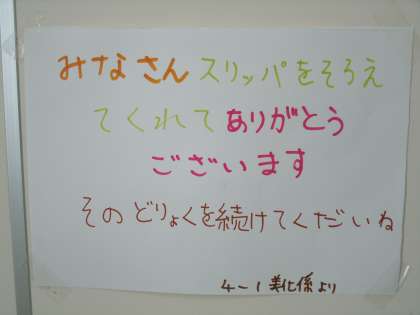 みなさんスリッパをそろえ
てくれてありがとう
ございます
そのどりょくを続けてくだいね
4-1 美化係より